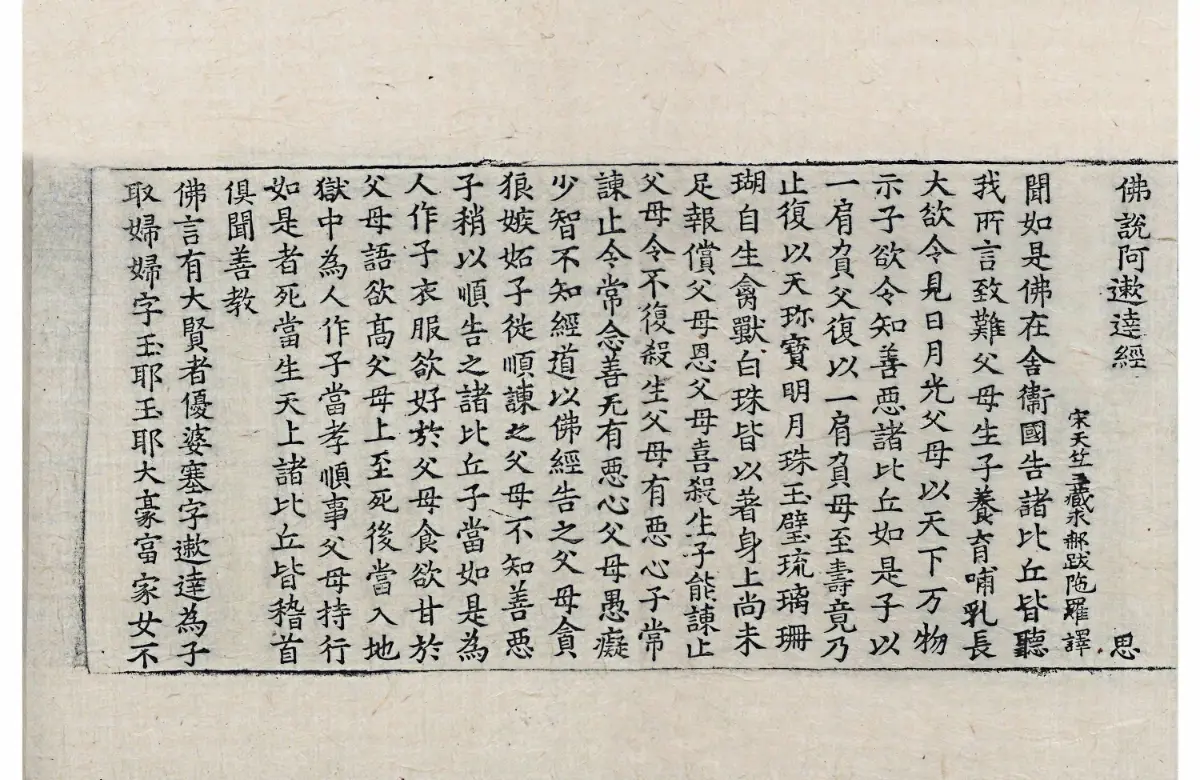 佛說阿遬達經 思
宋天竺三藏求那跋陁羅譯
聞如是佛在舍衞國告諸比丘皆聽
我所言致難父母生子養育哺乳長
大欲令見日月光父母以天下万物
示子欲令知善惡諸比丘如是子以
一肩負父復以一肩負母至壽竟乃
止復以天珎寶明月珠玉璧琉璃珊
瑚自生禽獸白珠皆以著身上尚未
足報償父母恩父母喜殺生子能諫止
父母令不復殺生父母有惡心子常
諫止令常念善无有惡心父母愚癡
少智不知經道以佛經告之父母貪
狼嫉妬子從順諫之父母不知善惡
子稍以順告之諸比丘子當如是為
人作子衣服欲好於父母食欲甘於
父母語欲高父母上至死後當入地
獄中為人作子當孝順事父母持行
如是者死當生天上諸比丘皆稽首
俱聞善教
佛言有大賢者優婆塞字遬達為子
取婦婦字玉耶玉耶大豪富家女不